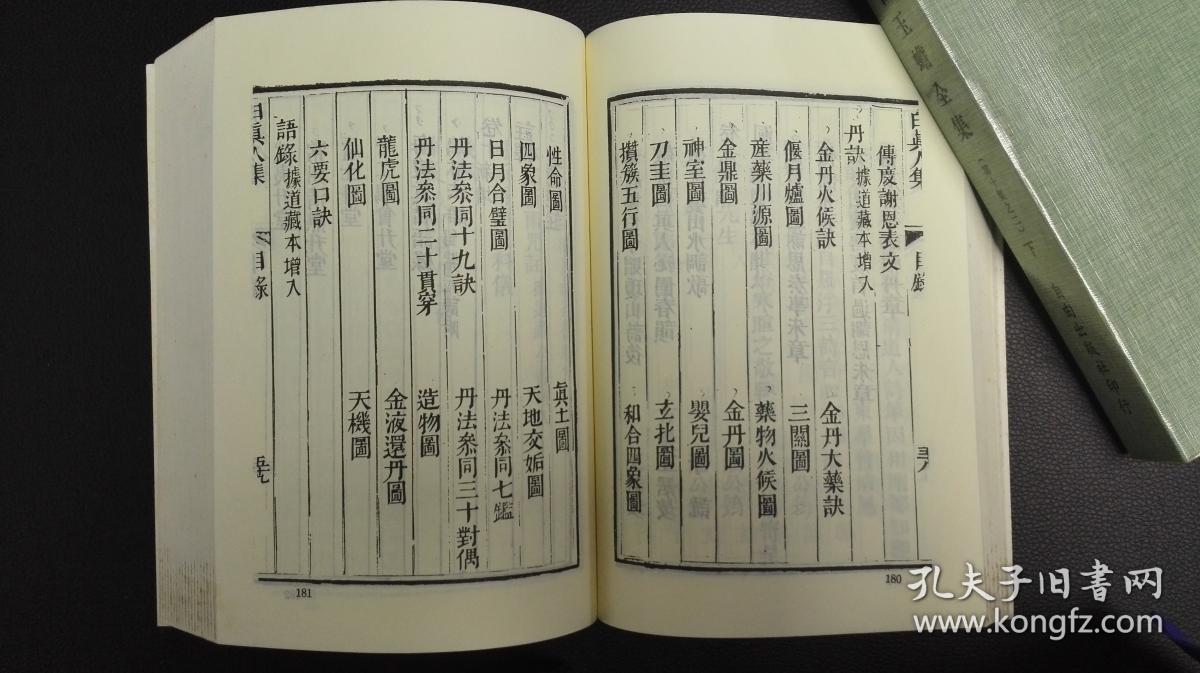 白眞人集
目錄
傳度謝恩表文
丹訣據道藏本增入
金丹火候訣
金丹大藥訣
偃月爐圖
三關圖
産藥川源圖
藥物火候圖
金鼎圖
金丹圖
神室圖
嬰兒圖
刀圭圖
攢簇五行圖
和合四象圖
180
性命圖
眞土圖
四象圖
天地交姤圖
日月合璧圖
丹法叅同七鑑
丹法叅同十九訣
丹法叅同三十對偶
丹法叅同二十貫穿
造物圖
龍虎圖
金液還丹圖
仙化圖
天機圖
六要口訣
語錄據道藏本增入
白眞人集
目錄
181
玉蟾全集
下
自由出版社印行
孔夫子旧书网
www.kongfz.com